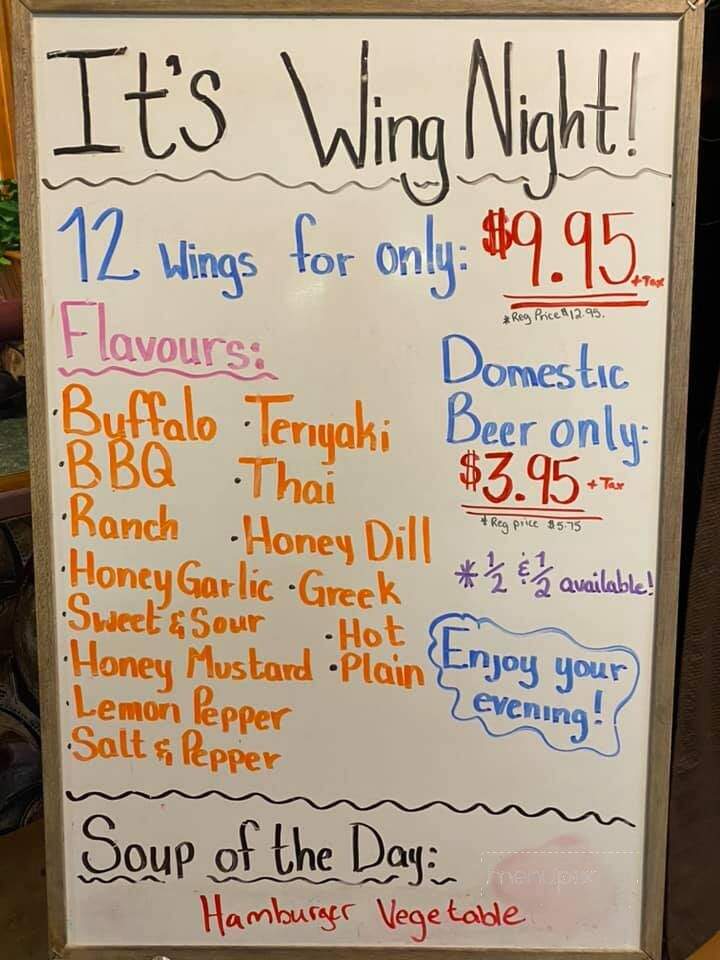 It's Wing Night!
12 Wings for only: $9.95 + Tax
* Reg Price $12.95.
Flavours:
• Buffalo
• BBQ
• Ranch
• Honey Garlic
• Sweet & Sour
• Honey Mustard
• Lemon Pepper
• Salt & Pepper
• Teriyaki
• Thai
• Honey Dill
• Greek
• Hot
• Plain
Domestic
Beer only:
$3.95 + Tax
* Reg price $5.75
* 1/2 & 1/2 available!
Enjoy your
evening!
Soup of the Day:
Hamburger Vegetable
menupix